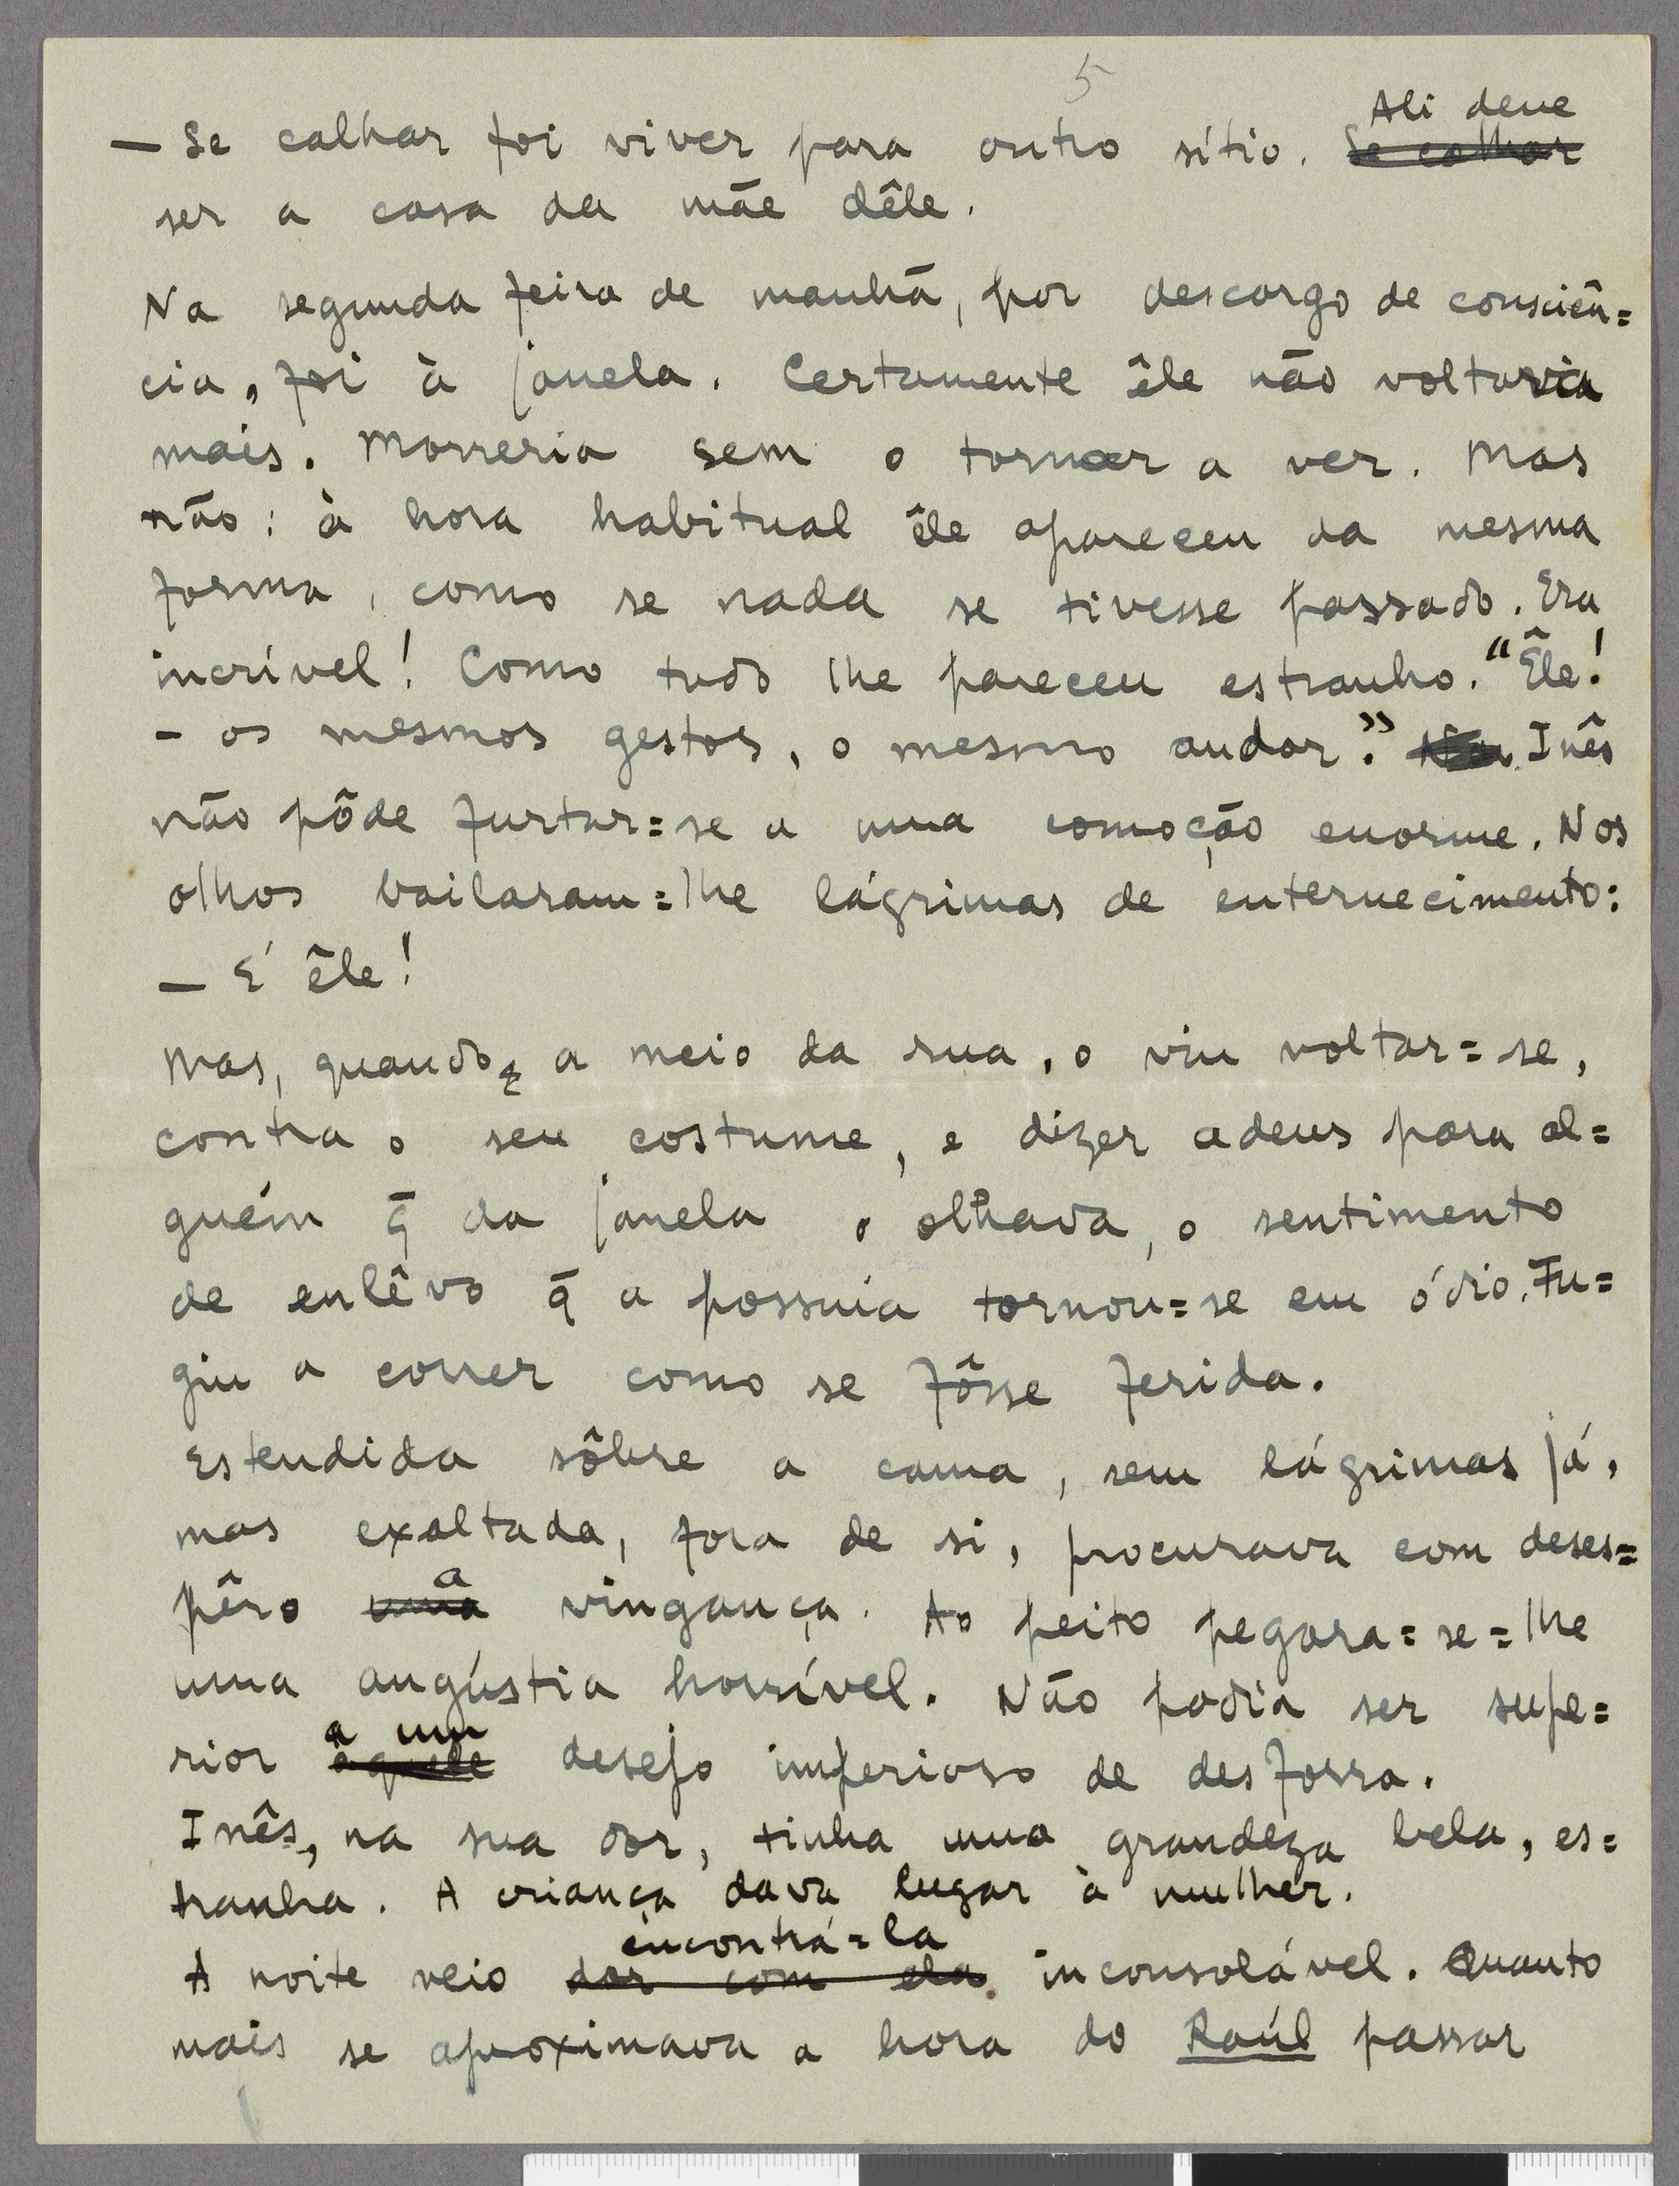 5
Ali deve
— Se calhar foi viver para outro sítio. Se calhar
ser a casa da mãe dêle.
Na segunda feira de manhã, por descargo de consciên=
cia, foi à janela. Certamente êle não voltaria
mais. Morreria sem o tornar a ver. Mas
não: à hora habitual êle apareceu da mesma
forma, como se nada se tivesse passado. Era
incrível! Como tudo lhe pareceu estranho. "Êle!
- os mesmos gestos, o mesmo andar." Inês
não pôde furtar=se a uma comoção enorme. Nos
olhos bailaram=lhe lágrimas de enternecimento:
— É êle!
Mas, quando, a meio da rua, o viu voltar=se,
contra o seu costume, e dizer adeus para al=
guém q̄ da janela o olhava, o sentimento
de enlêvo q̄ a possuía tornou=se em ódio. Fu=
giu a correr como se fôsse ferida.
Estendida sôbre a cama, sem lágrimas já,
mas exaltada, fora de si, procurava com deses=
a
pêro uma vingança. Ao peito pegara=se=lhe
uma angústia horrível. Não podia ser supe=
a um
rior àquele desejo imperioso de desforra.
Inês, na sua dor, tinha uma grandeza bela, es=
tranha. A criança dava lugar à mulher.
encontrá=la
A noite veio dar com ela inconsolável. Quanto
mais se aproximava a hora do Raúl passar